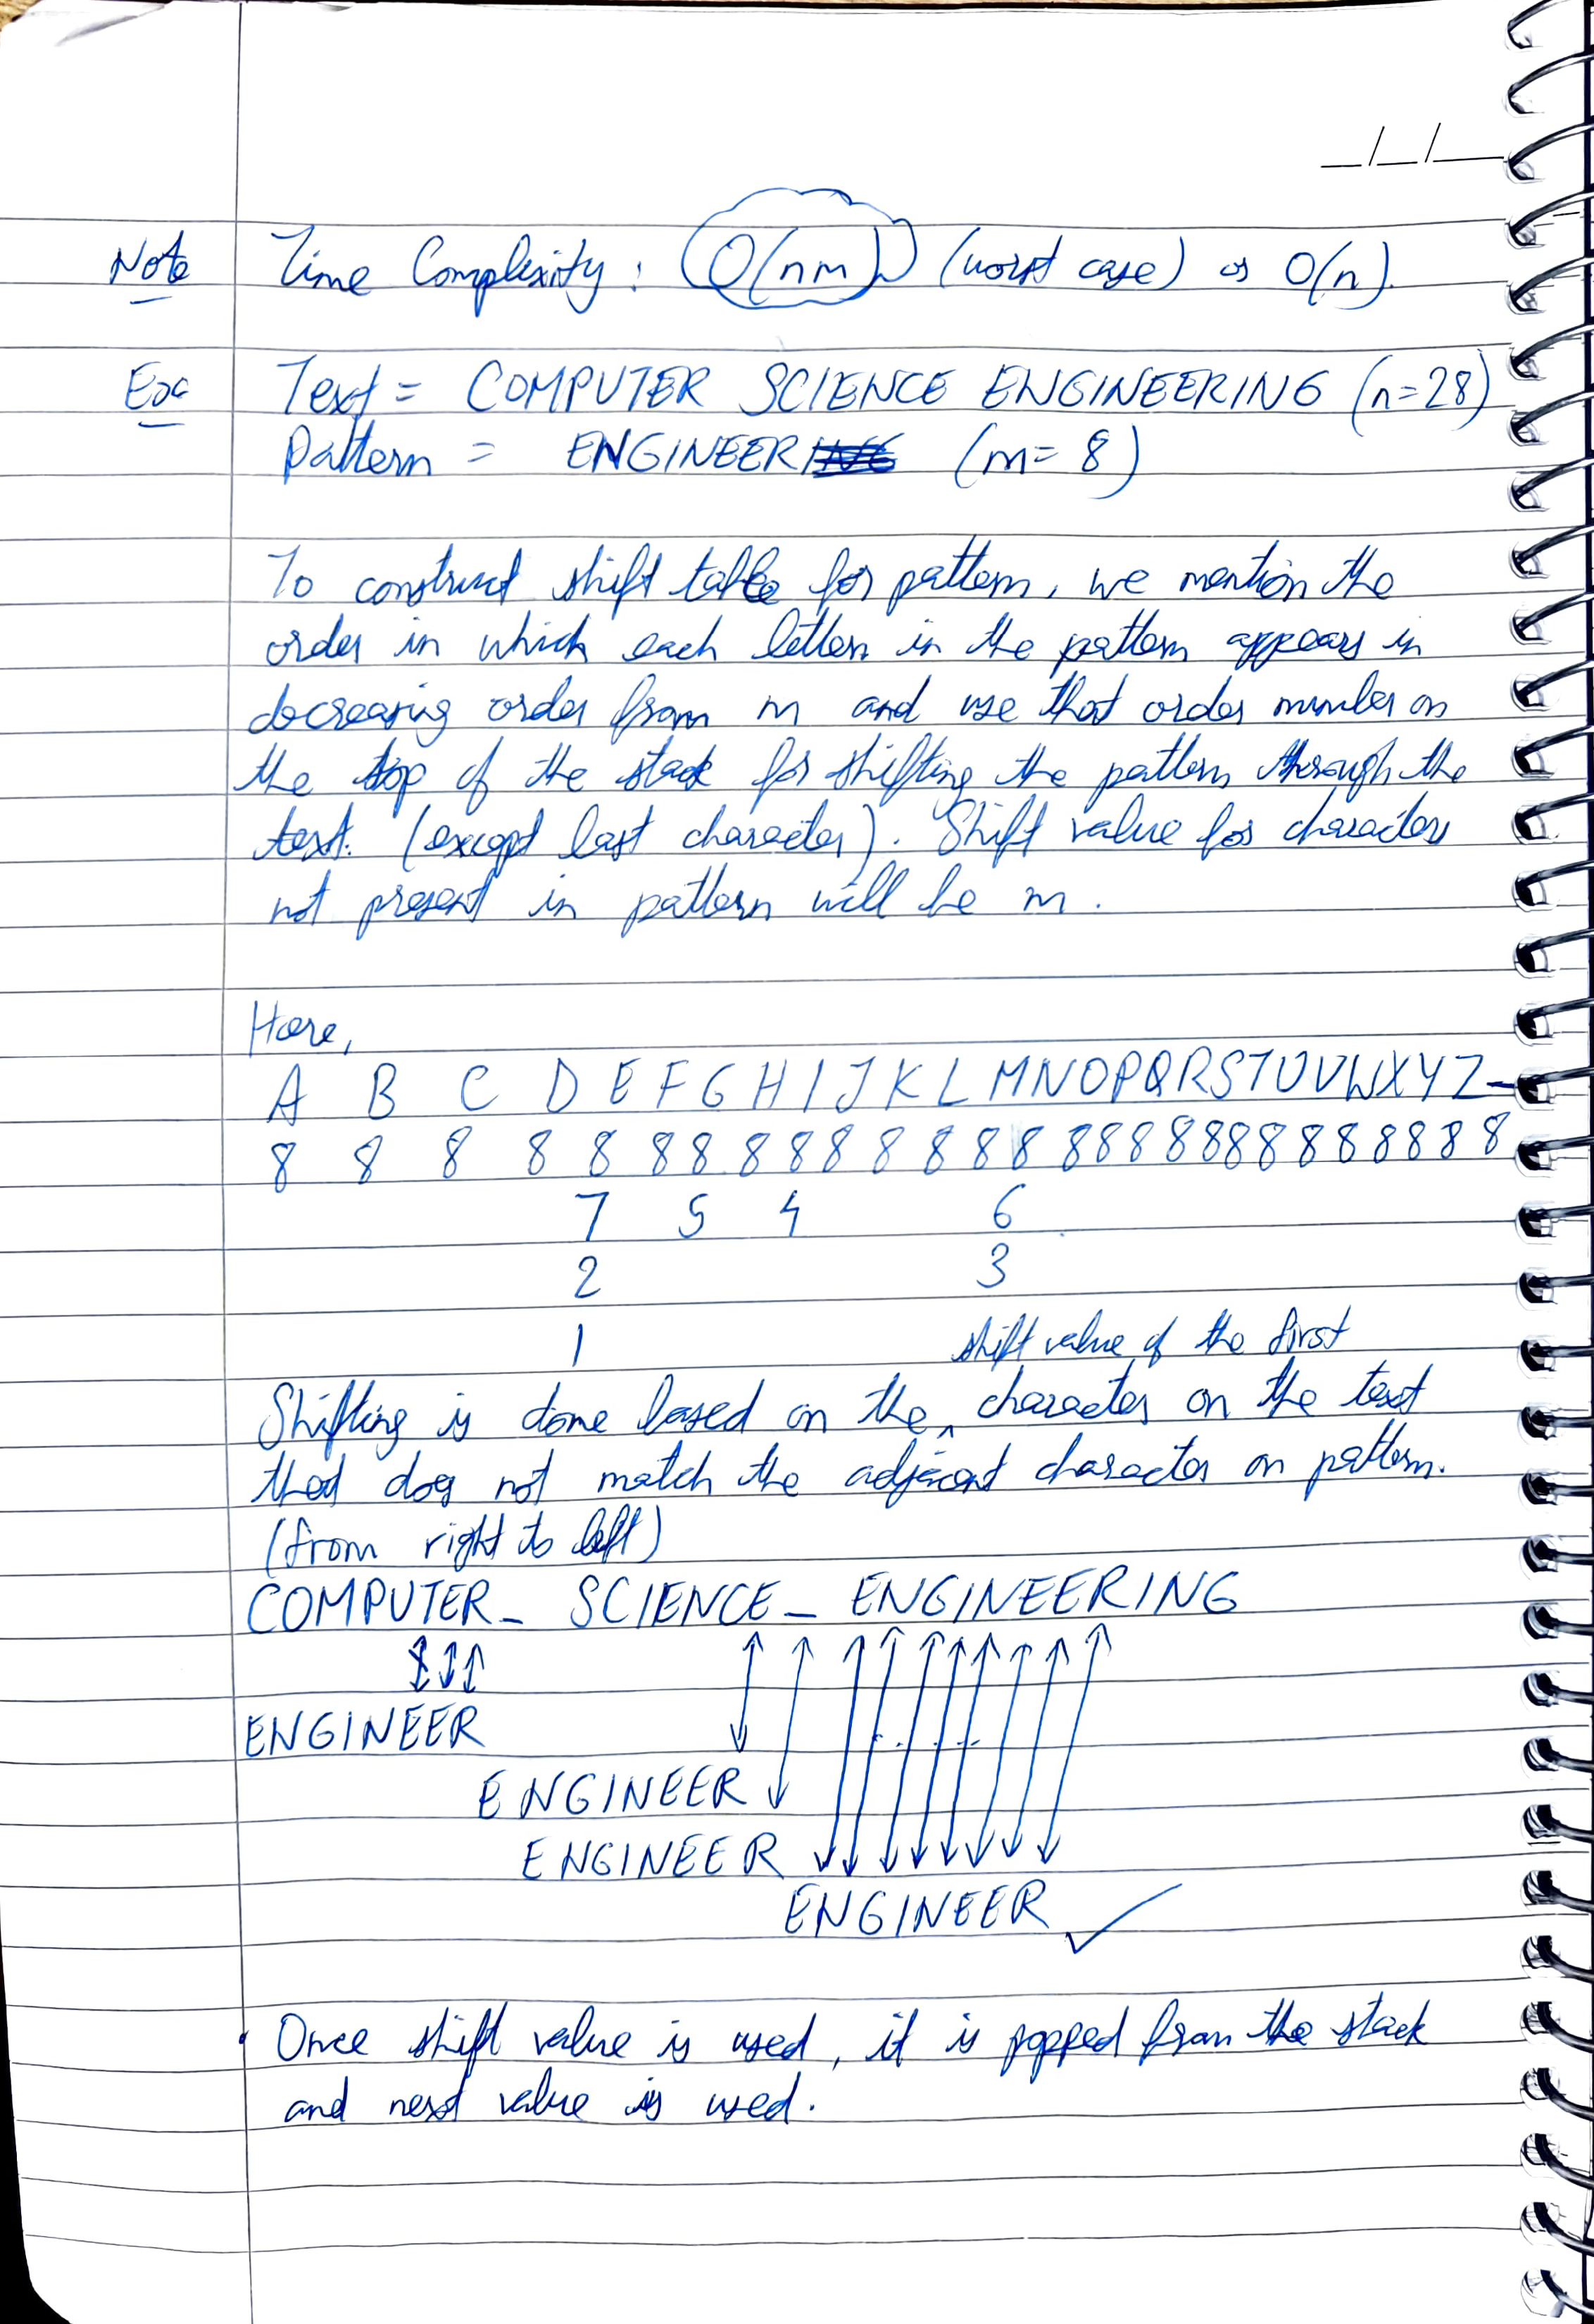 _/_/_
Note Time Complexity : O(nm) (worst case) or O(n).
Ex Text = COMPUTER SCIENCE ENGINEERING (n=28)
Pattern = ENGINEER (m= 8)
To construct shift table for pattern, we mention the
order in which each letter in the pattern appears in
decreasing order from m and use that order number on
the top of the stack for shifting the pattern through the
text. (except last character). Shift value for characters
not present in pattern will be m.
Here,
A B C D E F G H I J K L M N O P Q R S T U V W X Y Z -
8 8 8 8 8 8 8 8 8 8 8 8 8 8 8 8 8 8 8 8 8 8 8 8 8 8
7 5 4 6
2 3
1 shift value of the first
Shifting is done based on the ^ character on the text
that does not match the adjacent character on pattern.
(from right to left)
COMPUTER_ SCIENCE _ ENGINEERING
ENGINEER
ENGINEER
ENGINEER
ENGINEER ✓
• Once shift value is used, it is popped from the stack
and next value is used.